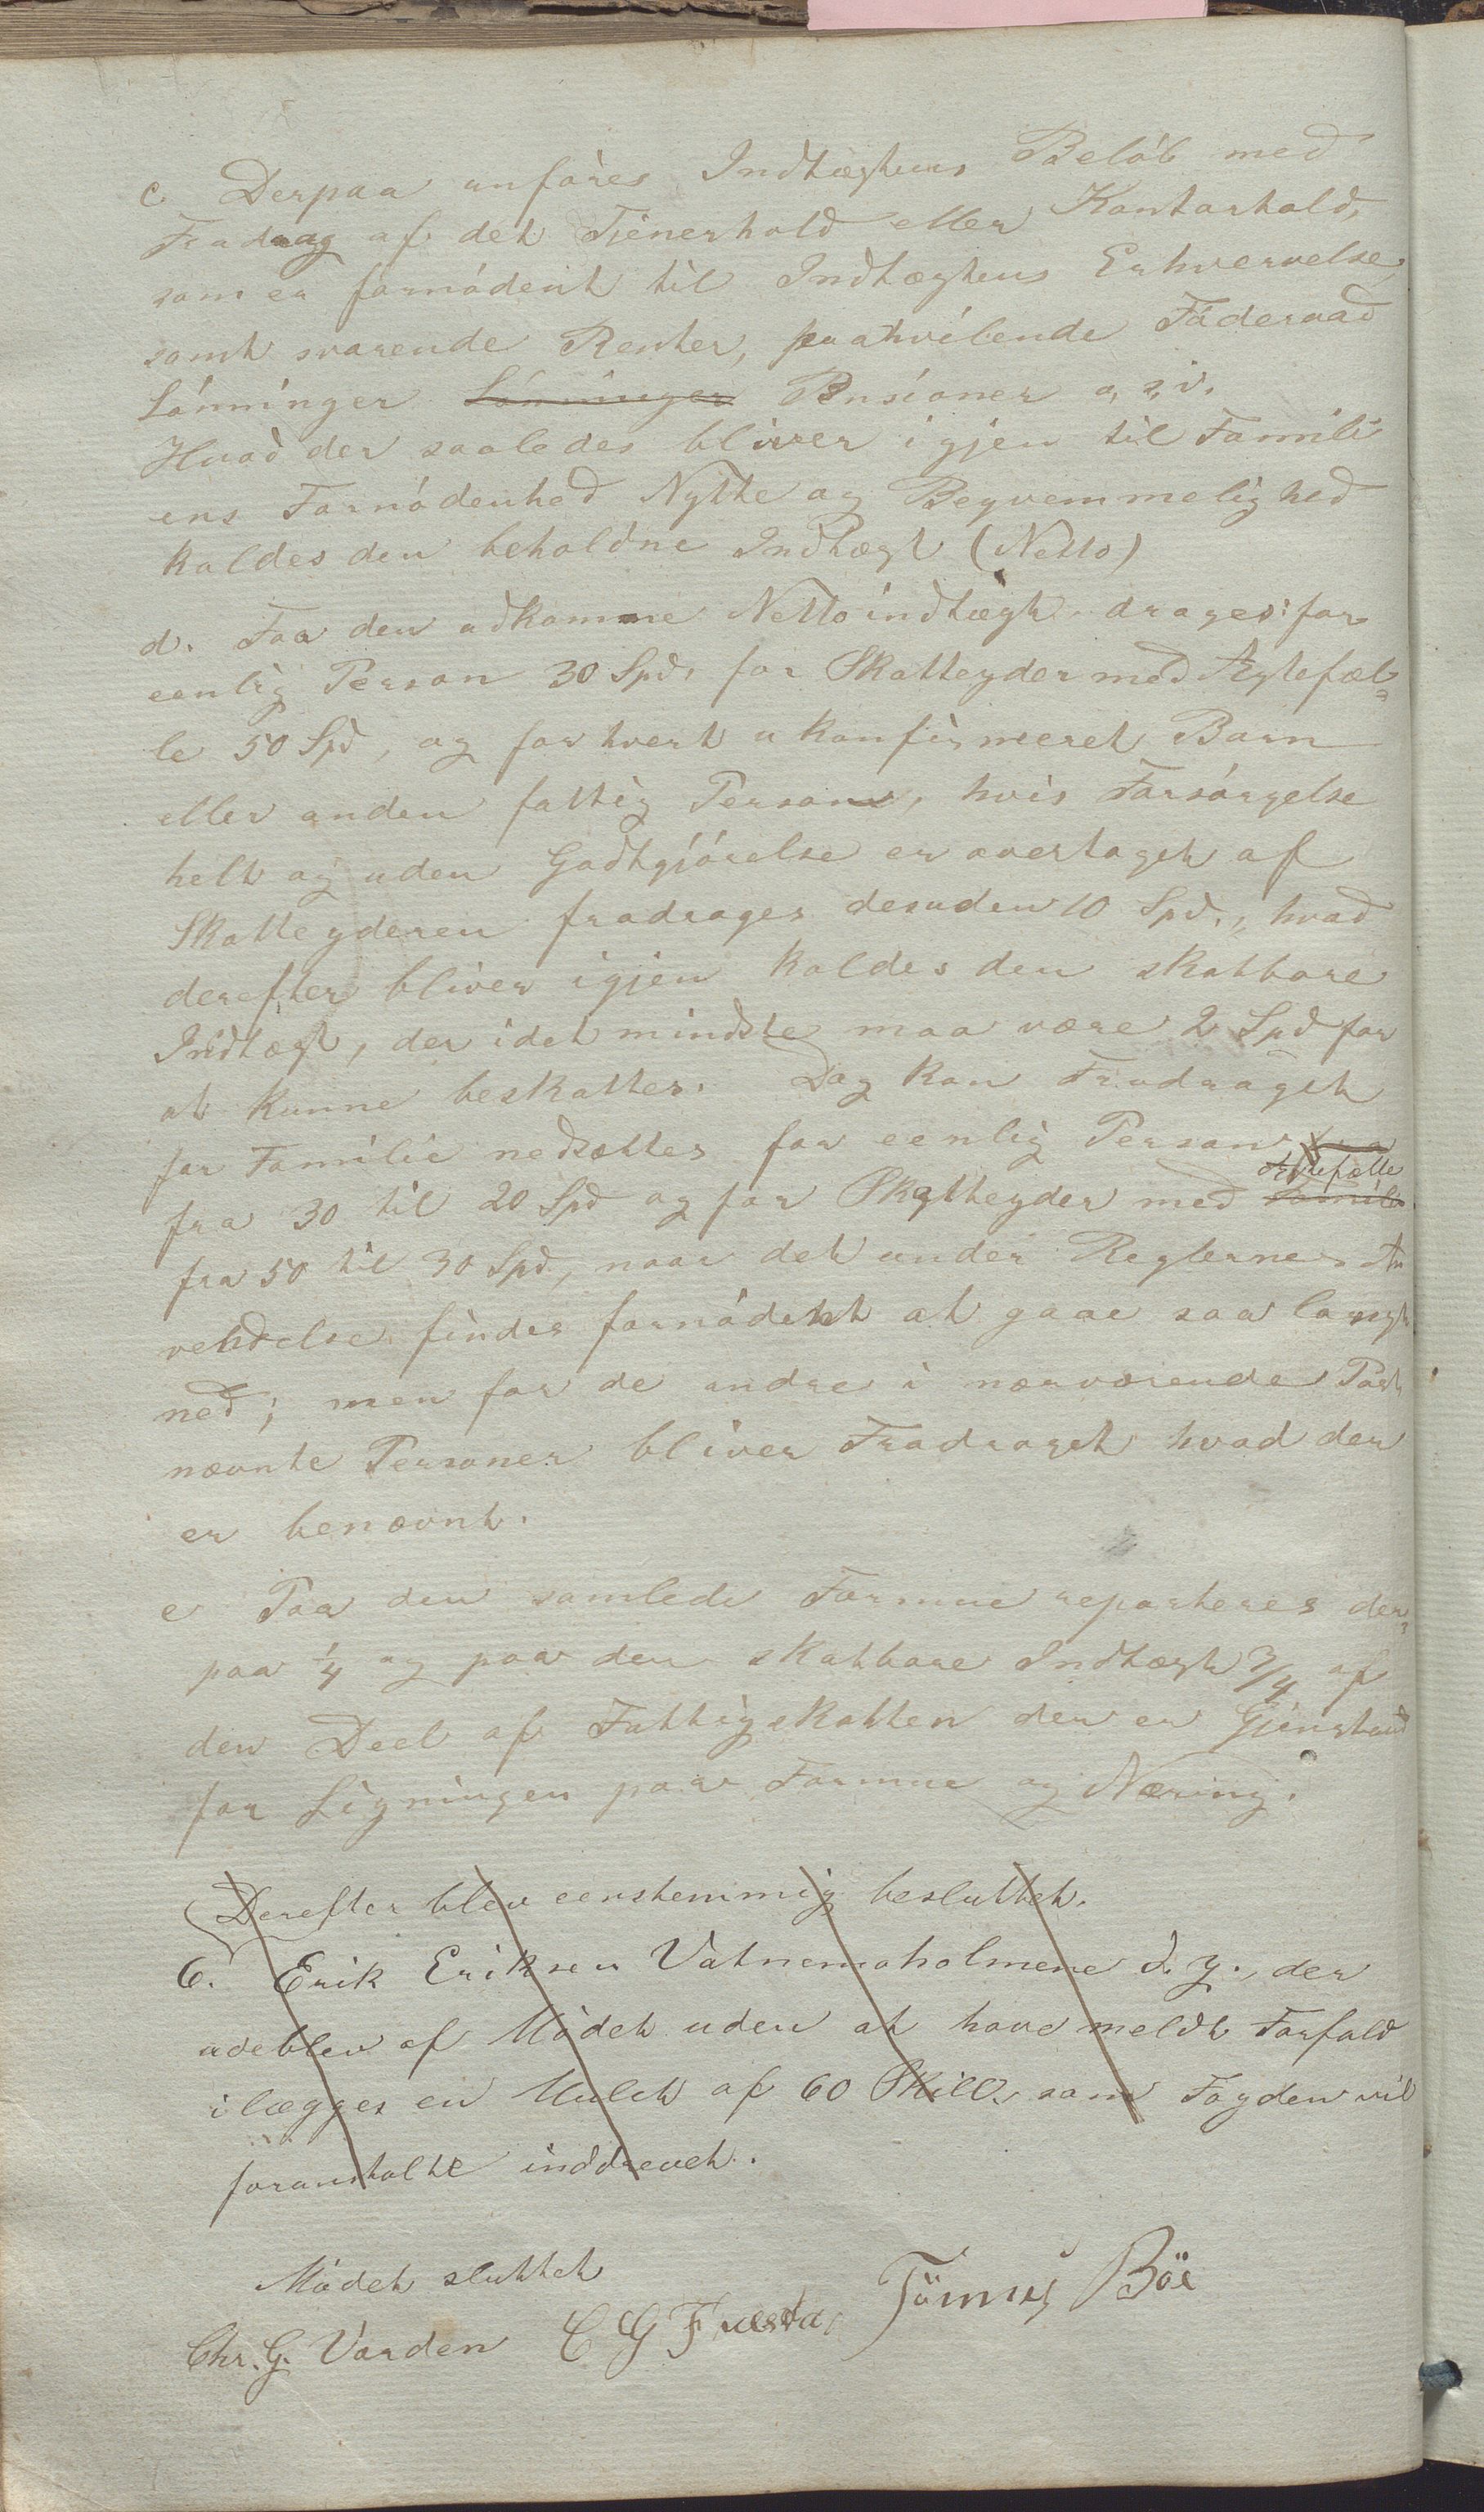 c. Derpaa anføres Indtægtens Beløb med
Fradrag af det Tjenerhold eller Kontorhold,
som er fornødent til Indtægtens Erhvervelse,
samt svarende Renter, paahvilende Føderaad
Lønninger Lønninger Pensioner o, s, v.
Hvad der saaledes bliver igjen til Famili
ens Fornødenhed Nytte og Beqvemmelighed
kaldes den beholdne Indtægt (Netto)
d. Fra den udkomne Nettoindtægt drages: for
eenlig Person 30 Spd, for Skatteyder med Ægtefæl-
le 50 Spd, og for hvert ukonfirmeret Barn
eller anden fattig Person, hvis Forsørgelse
helt og uden Godtgjørelse er overtaget af
Skatteyderen fradrages desuden 10 Spd., hvad
derefter bliver igjen kaldes den skatbare
Indtægt, der idet mindste maa være 2 Spd for
at kunne beskattes. Dog kan Fradraget
for Familie nedsættes for eenlig Person fra
Ægtefælle
fra 30 til 20 Spd og for Skatteyder med Familie
fra 50 til 30 Spd, naar det under Reglernes An
vendelse findes fornødent at gaae saa langt
ned; men for de andre i nærværende Post
nævnte Personer bliver Fradraget hvad der
er benævnt.
e Paa den samlede Formue reparteres der-
paa 1/4 og paa den skatbare Indtægt 3/4 af
den Deel af Fattigskatten der er Gjenstand
for Ligningen paa Formue og Næring.
Derefter blev eenstemmig besluttet.
6. Erik Eriksen Vatnemoholmene d. y., der
udeblev af Mødet uden at have meldt Forfald
ilægges en Mulct af 60 Skill. som Fogden vil
foranstalte inddrevet.
Mødet sluttet
Chr. G. Varden C G Tönnes Böe